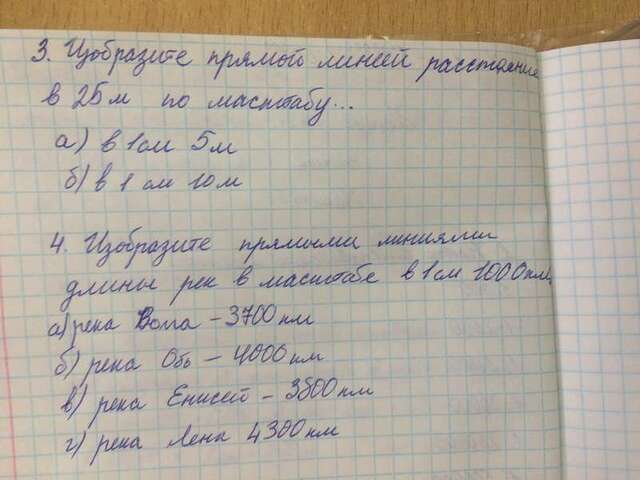 3. Изобразите прямой линией расстояние
в 25 м по масштабу...
а) в 1 см 5 м
б) в 1 см 10 м
4. Изобразите прямыми линиями
длины рек в масштабе в 1 см 1000 км.
а) река Волга - 3700 км
б) река Обь - 4000 км
в) река Енисей - 3800 км
г) река Лена 4300 км